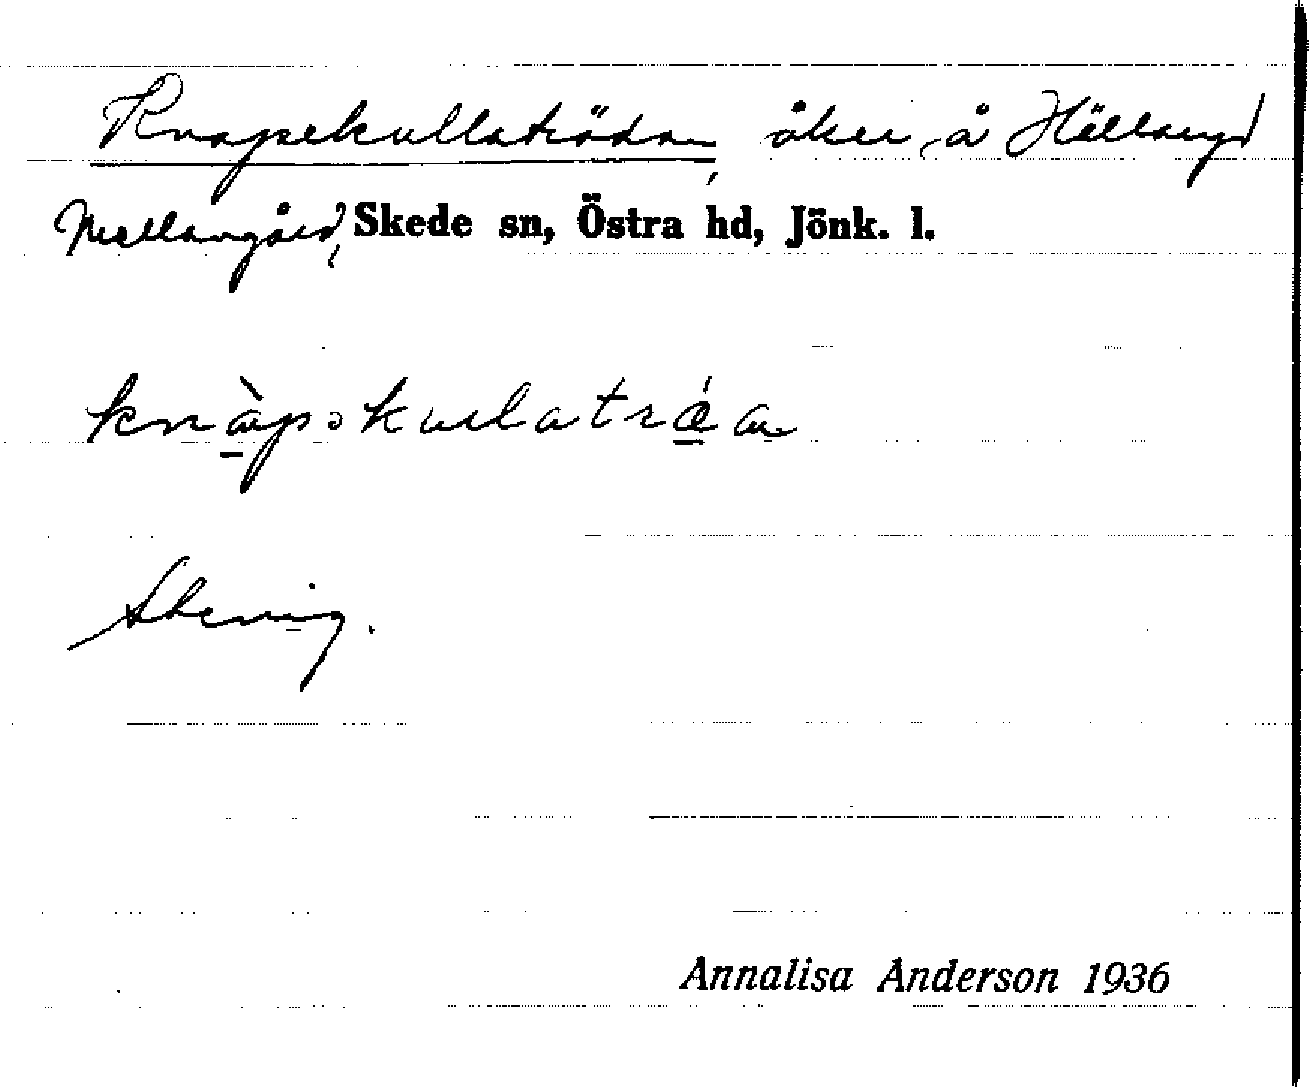 Knapekullaträdan, åker å Hällaryd
Mellangård, Skede sn, Östra hd, Jönk. l.
knàpəkullatrǽan
Stenig.
Annalisa Anderson 1936